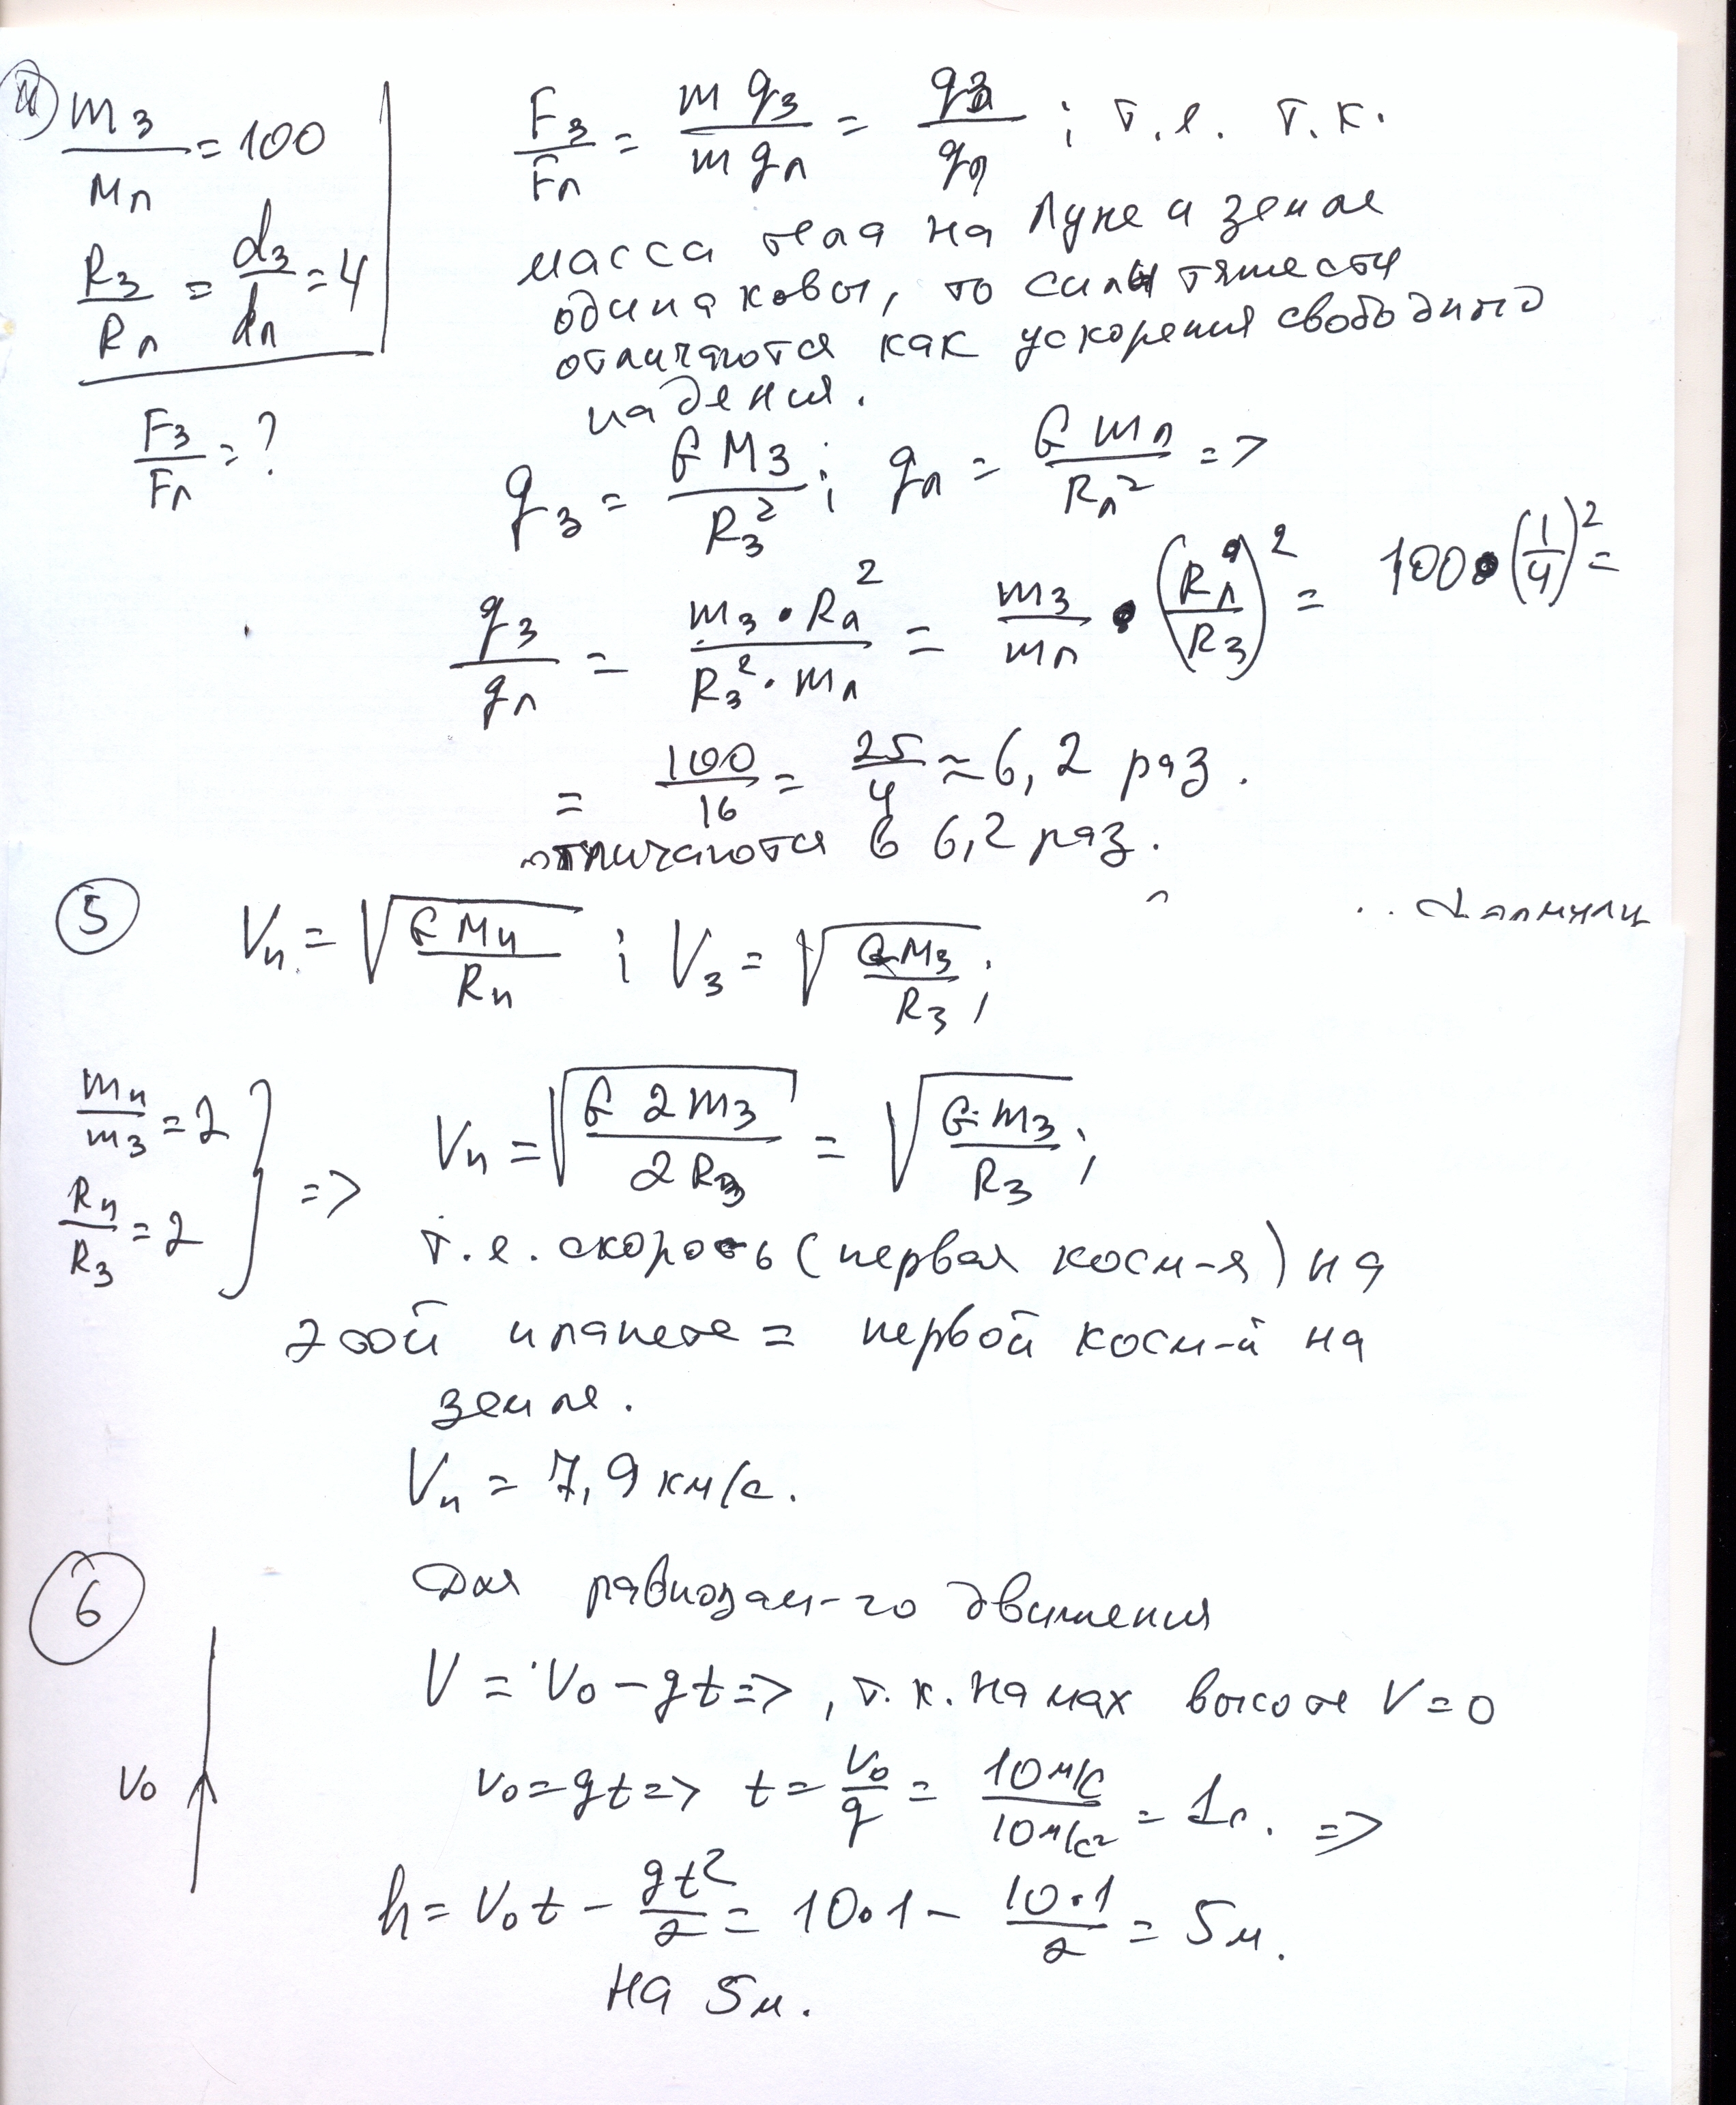 4) m₃/Mл = 100
R₃/Rл = d₃/dл = 4
F₃/Fл = ?
F₃/Fл = m g₃/m gл = g₃/gл ; т.е. т.к.
масса тела на Луне и земле
одинаковы, то силы тяжести
отличаются как ускорения свободного
падения.
g₃ = G M₃/R₃² ; gл = G mл/Rл² =>
g₃/gл = m₃ • Rл²/R₃² • mл = m₃/mл • (Rл/R₃)² = 100 • (1/4)² =
= 100/16 = 25/4 ≈ 6,2 раз.
отличаются в 6,2 раз.
5 Vп = √(G Mп/Rп) ; V₃ = √(G M₃/R₃) ;
mп/m₃ = 2
Rп/R₃ = 2 } => Vп = √(G 2m₃/2R₃) = √(G · m₃/R₃) ;
т.е. скорость (первая косм-я) на
этой планете = первой косм-й на
земле.
Vп = 7,9 км/с.
6 Для равнозам-го движения
V = V₀ – gt => , т.к. на мах высоте V = 0
V₀
V₀ = gt => t = V₀/g = 10 м/с/10 м/с² = 1с. =>
h = V₀t – gt²/2 = 10•1 – 10•1/2 = 5м.
на 5м.